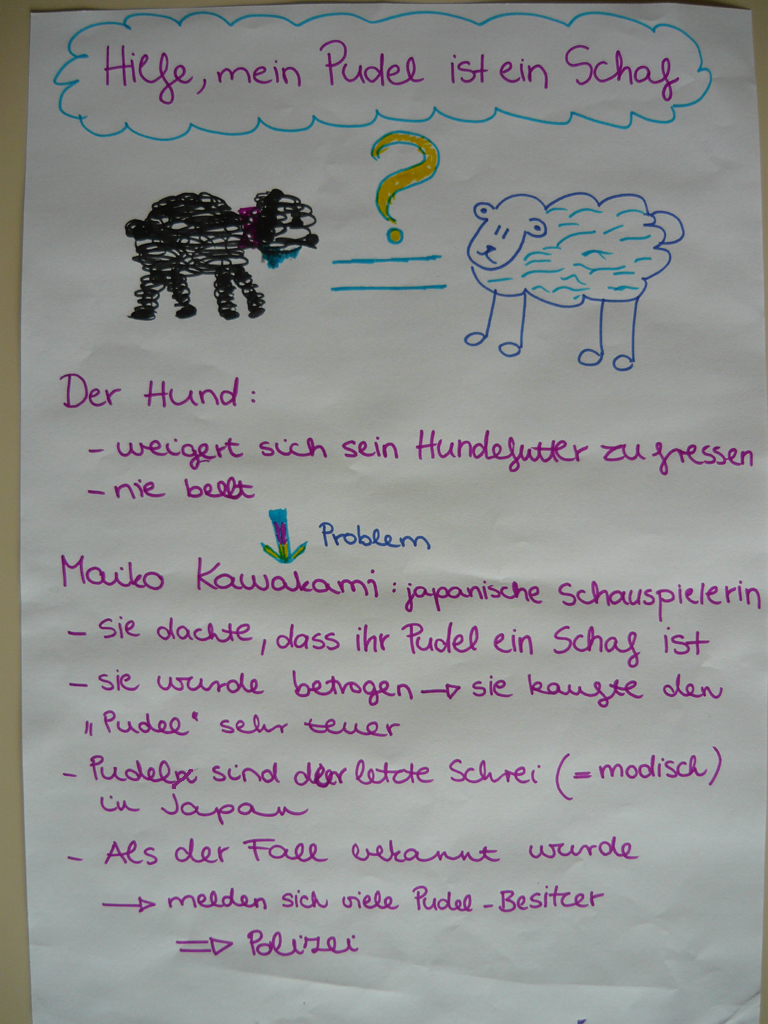 Hilfe, mein Pudel ist ein Schaf
?
=
Der Hund:
- weigert sich sein Hundefutter zu fressen
- nie bellt
Problem
Maiko Kawakami: japanische Schauspielerin
- sie dachte, dass ihr Pudel ein Schaf ist
- sie wurde betrogen → sie kaufte den
"Pudel" sehr teuer
- Pudel sind der letzte Schrei (= modisch)
in Japan
- Als der Fall bekannt wurde
→ melden sich viele Pudel-Besitzer
⇒ Polizei